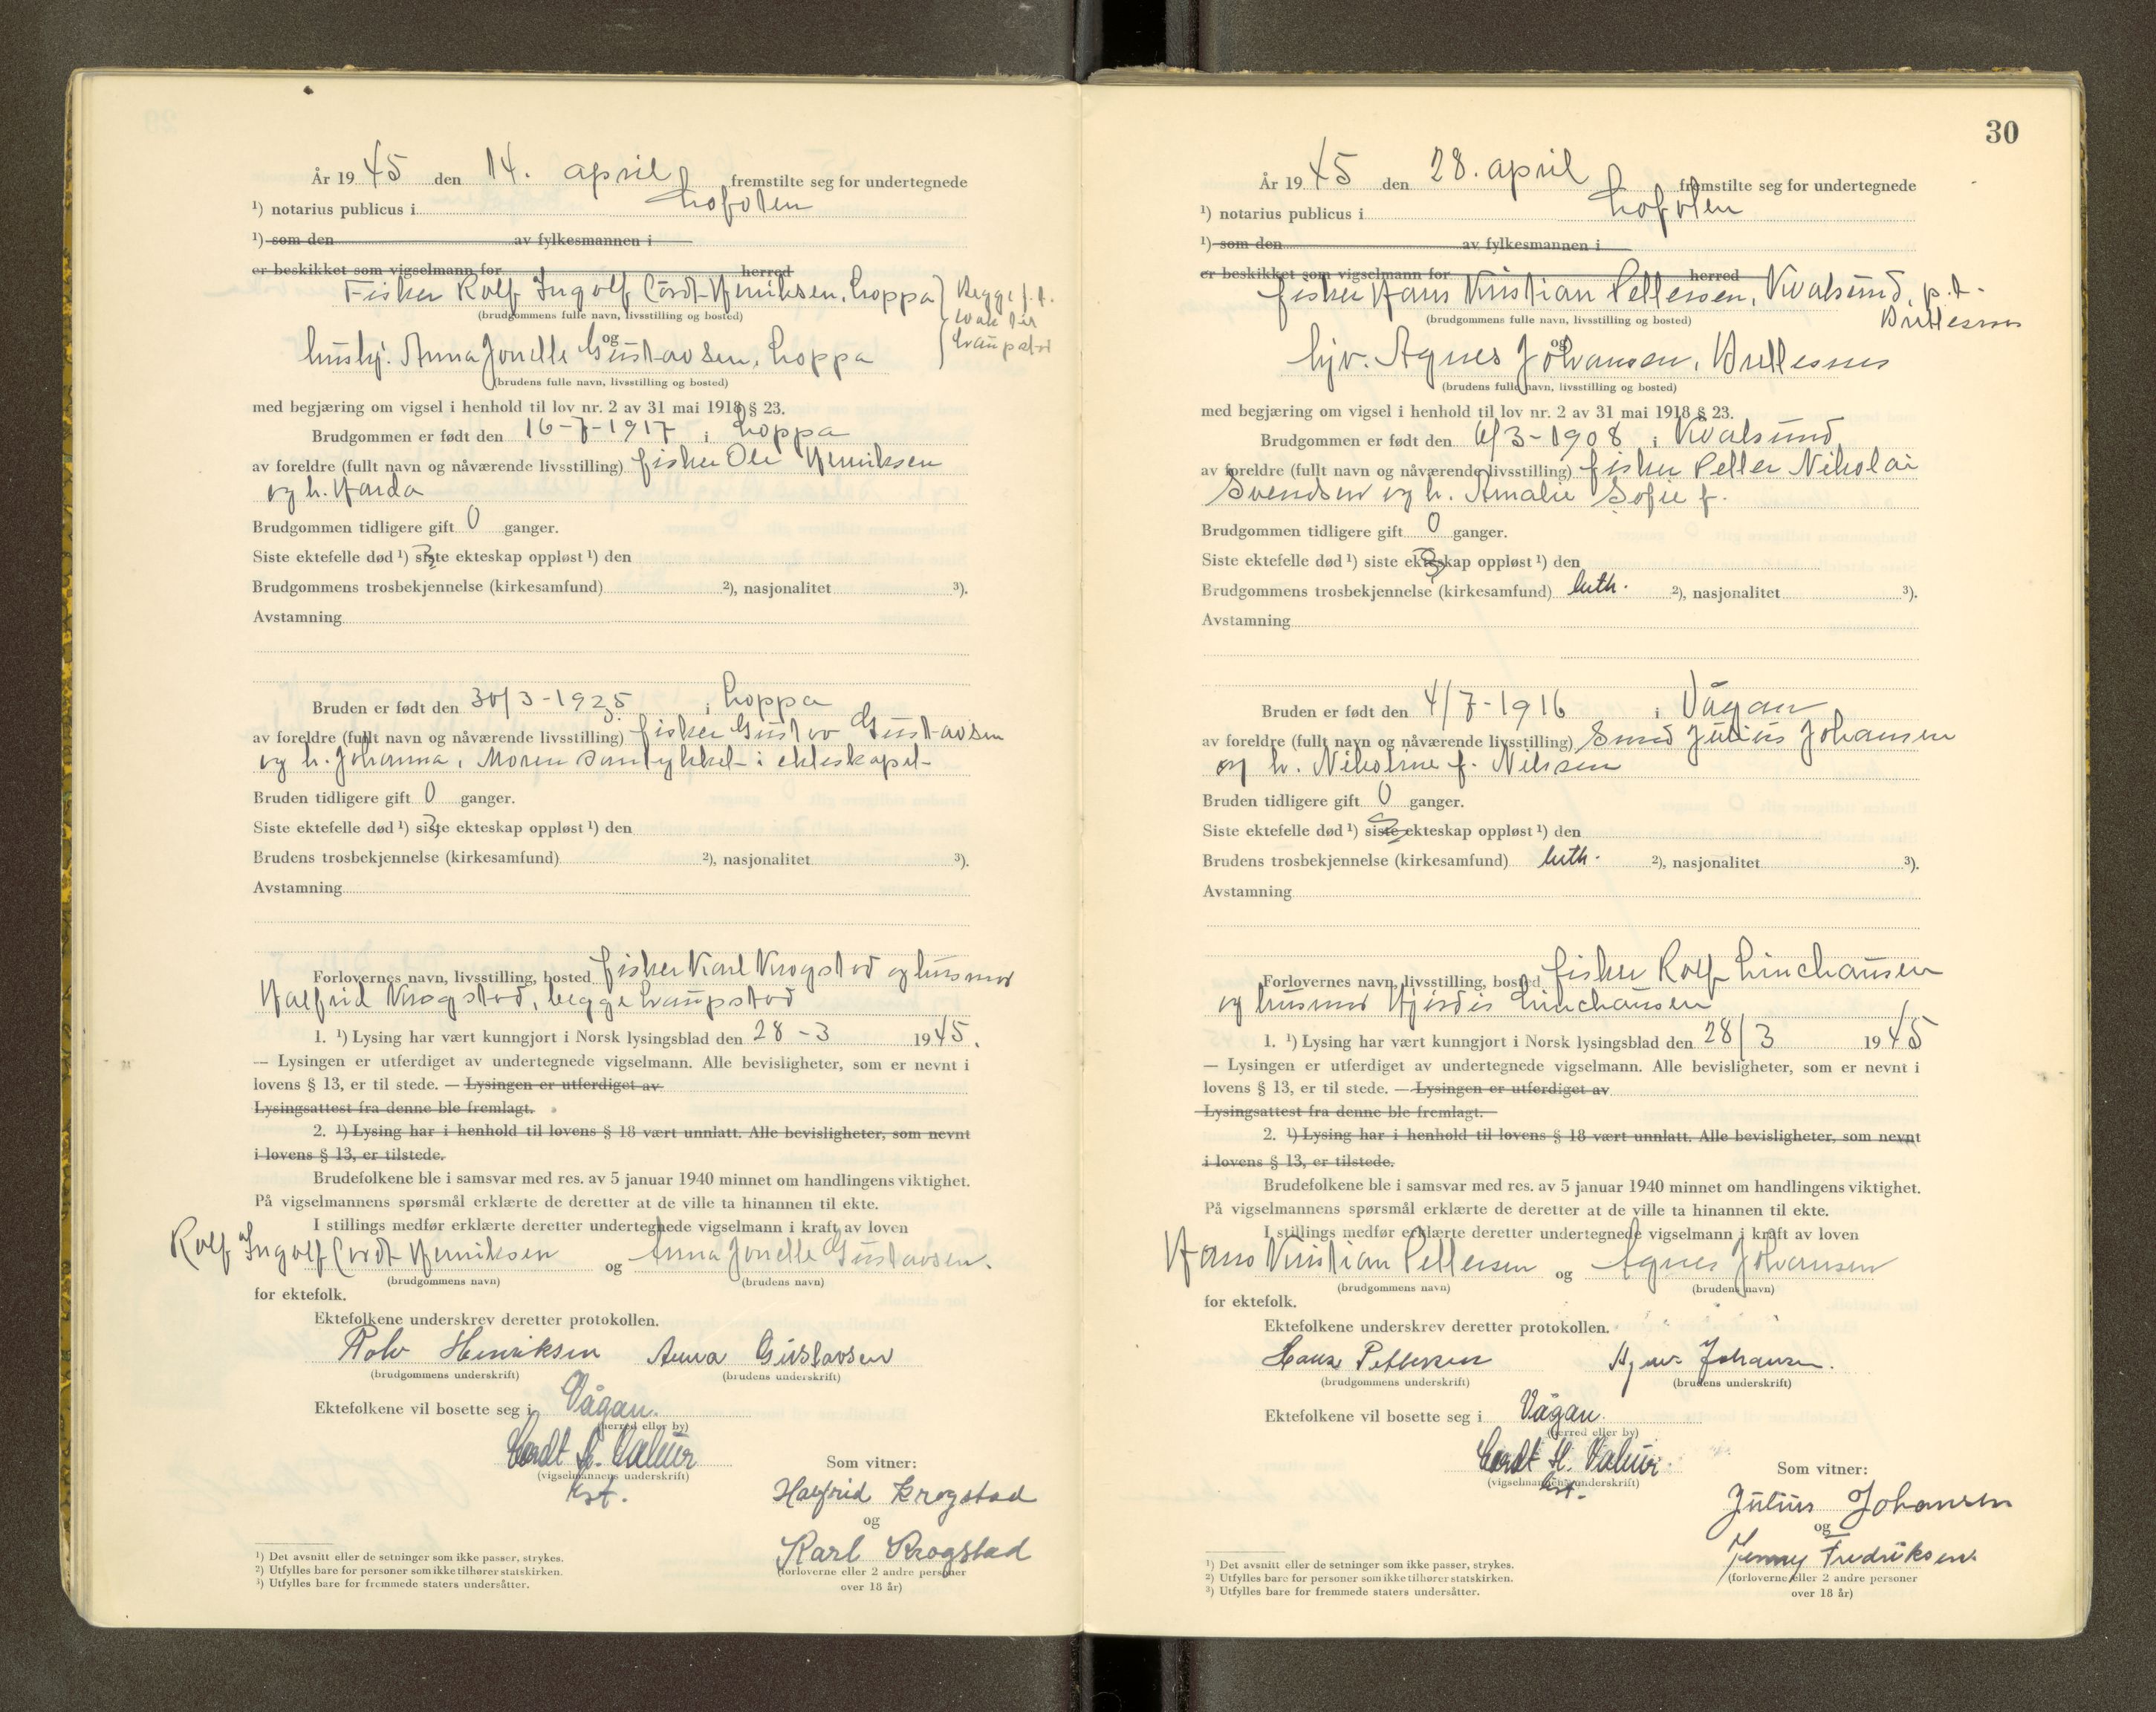 År 1945 den 14. april fremstilte seg for undertegnede
¹) notarius publicus i Lofoten
¹) som den av fylkesmannen i
er beskikket som vigselmann for herred
Fisker Rolf Ingolf Cordt Henriksen, Loppa } Begge p.t.
(brudgommens fulle navn, livsstilling og bosted)
Laupstad
og
hushj. Anna Jonelle Gustavsen, Loppa
(brudens fulle navn, livsstilling og bosted)
med begjæring om vigsel i henhold til lov nr. 2 av 31 mai 1918 § 23.
Brudgommen er født den 16-7-1917 i Loppa
av foreldre (fullt navn og nåværende livsstilling) fisker Ole Henriksen
og h. Harda
Brudgommen tidligere gift 0 ganger.
Siste ektefelle død ¹) siste ekteskap oppløst ¹) den
Brudgommens trosbekjennelse (kirkesamfund) ²), nasjonalitet ³).
Avstamning
Bruden er født den 30/3-1925 i Loppa
av foreldre (fullt navn og nåværende livsstilling) fisker Gustav Gustavsen
og h. Johanna, Moren samtykket i ekteskapet
Bruden tidligere gift 0 ganger.
Siste ektefelle død ¹) siste ekteskap oppløst ¹) den
Brudens trosbekjennelse (kirkesamfund) ²), nasjonalitet ³).
Avstamning
Forlovernes navn, livsstilling, bosted fisker Karl Krogstad og husmor
Halfrid Krogstad, begge Laupstad
1. ¹) Lysing har vært kunngjort i Norsk lysingsblad den 28-3 1945.
— Lysingen er utferdiget av undertegnede vigselmann. Alle bevisligheter, som er nevnt i
lovens § 13, er til stede. — Lysingen er utferdiget av
Lysingsattest fra denne ble fremlagt.
2. ¹) Lysing har i henhold til lovens § 18 vært unnlatt. Alle bevisligheter, som nevnt
i lovens § 13, er tilstede.
Brudefolkene ble i samsvar med res. av 5 januar 1940 minnet om handlingens viktighet.
På vigselmannens spørsmål erklærte de deretter at de ville ta hinannen til ekte.
I stillings medfør erklærte deretter undertegnede vigselmann i kraft av loven
Rolf Ingolf Cordt Henriksen og Anna Jonelle Gustavsen.
(brudgommens navn) (brudens navn)
for ektefolk.
Ektefolkene underskrev deretter protokollen.
Rolv Henriksen Anna Gustavsen
(brudgommens underskrift) (brudens underskrift)
Ektefolkene vil bosette seg i Vågan.
(herred eller by)
Cordt H. Valeur
(vigselmannens underskrift)
kst.
Som vitner:
Halfrid Krogstad
og
Karl Krogstad
(forloverne eller 2 andre personer
over 18 år)
¹) Det avsnitt eller de setninger som ikke passer, strykes.
²) Utfylles bare for personer som ikke tilhører statskirken.
³) Utfylles bare for fremmede staters undersåtter.
30
År 1945 den 28. april fremstilte seg for undertegnede
¹) notarius publicus i Lofoten
¹) som den av fylkesmannen i
er beskikket som vigselmann for herred
fisker Hans Kristian Pettersen, Kvalsund, p.t.
Brettesnes
(brudgommens fulle navn, livsstilling og bosted)
og
hjv. Agnes Johansen, Brettesnes
(brudens fulle navn, livsstilling og bosted)
med begjæring om vigsel i henhold til lov nr. 2 av 31 mai 1918 § 23.
Brudgommen er født den 6/3-1908 i Kvalsund
av foreldre (fullt navn og nåværende livsstilling) fisker Petter Nikolai
Svendsen og h. Amalie Sofie f.
Brudgommen tidligere gift 0 ganger.
Siste ektefelle død ¹) siste ekteskap oppløst ¹) den
Brudgommens trosbekjennelse (kirkesamfund) luth. ²), nasjonalitet ³).
Avstamning
Bruden er født den 4/7-1916 i Vågan
av foreldre (fullt navn og nåværende livsstilling) Smed Julius Johansen
og h. Nikoline f. Nilssen
Bruden tidligere gift 0 ganger.
Siste ektefelle død ¹) siste ekteskap oppløst ¹) den
Brudens trosbekjennelse (kirkesamfund) luth. ²), nasjonalitet ³).
Avstamning
Forlovernes navn, livsstilling, bosted fisker Rolf Linchausen
og husmor Hjørdis Linchausen
1. ¹) Lysing har vært kunngjort i Norsk lysingsblad den 28/3 1945
— Lysingen er utferdiget av undertegnede vigselmann. Alle bevisligheter, som er nevnt i
lovens § 13, er til stede. — Lysingen er utferdiget av
Lysingsattest fra denne ble fremlagt.
2. ¹) Lysing har i henhold til lovens § 18 vært unnlatt. Alle bevisligheter, som nevnt
i lovens § 13, er tilstede.
Brudefolkene ble i samsvar med res. av 5 januar 1940 minnet om handlingens viktighet.
På vigselmannens spørsmål erklærte de deretter at de ville ta hinannen til ekte.
I stillings medfør erklærte deretter undertegnede vigselmann i kraft av loven
Hans Kristian Pettersen og Agnes Johansen
(brudgommens navn) (brudens navn)
for ektefolk.
Ektefolkene underskrev deretter protokollen.
Hans Pettersen Agnes Johansen.
(brudgommens underskrift) (brudens underskrift)
Ektefolkene vil bosette seg i Vågan.
(herred eller by)
Cordt H. Valeur
(vigselmannens underskrift)
kst.
Som vitner:
Julius Johansen
og
Jenny Fredriksen.
(forloverne eller 2 andre personer
over 18 år)
¹) Det avsnitt eller de setninger som ikke passer, strykes.
²) Utfylles bare for personer som ikke tilhører statskirken.
³) Utfylles bare for fremmede staters undersåtter.